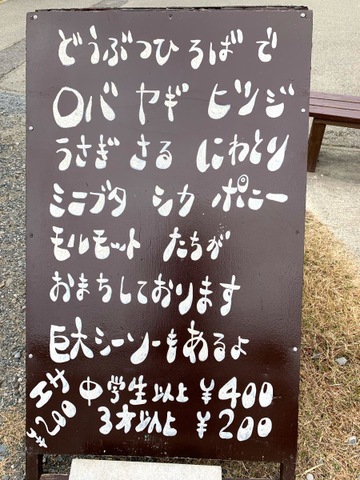 どうぶつひろばで
ロバ ヤギ ヒツジ
うさぎ さる にわとり
ミニブタ シカ ポニー
モルモット たちが
おまちしております
巨大シーソーもあるよ
エサ ¥200
中学生以上 ¥400
3才以上 ¥200